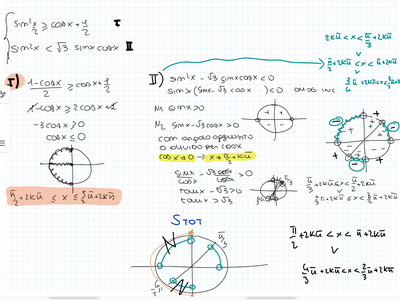 sin²x/2 ≥ cosx + 1/2 I
sin²x < √3 sinx cosx II
I) (1-cosx)/2 ≥ cosx + 1/2
1-cosx ≥ 2cosx + 1
-3cosx ≥ 0
cosx ≤ 0
π/2 + 2kπ ≤ x ≤ 3/2 π + 2kπ
II) sin²x - √3 sinx cosx < 0
sinx (sinx - √3 cosx) < 0
N1 sinx > 0
N2 sinx - √3 cosx > 0
con angolo aggiunto
o divido per cosx
cosx ≠ 0 → x ≠ π/2 + kπ
sinx/cosx - √3 cosx/cosx > 0
tanx - √3 > 0
tanx > √3
π/3
STOT
π/3
2kπ < x < π/3 + 2kπ
v
π/2 + 2kπ < x < π + 2kπ
v
π/2 + 2kπ < x < π + 2kπ
v
4/3 π + 2kπ < x < 3/2 π + 2kπ